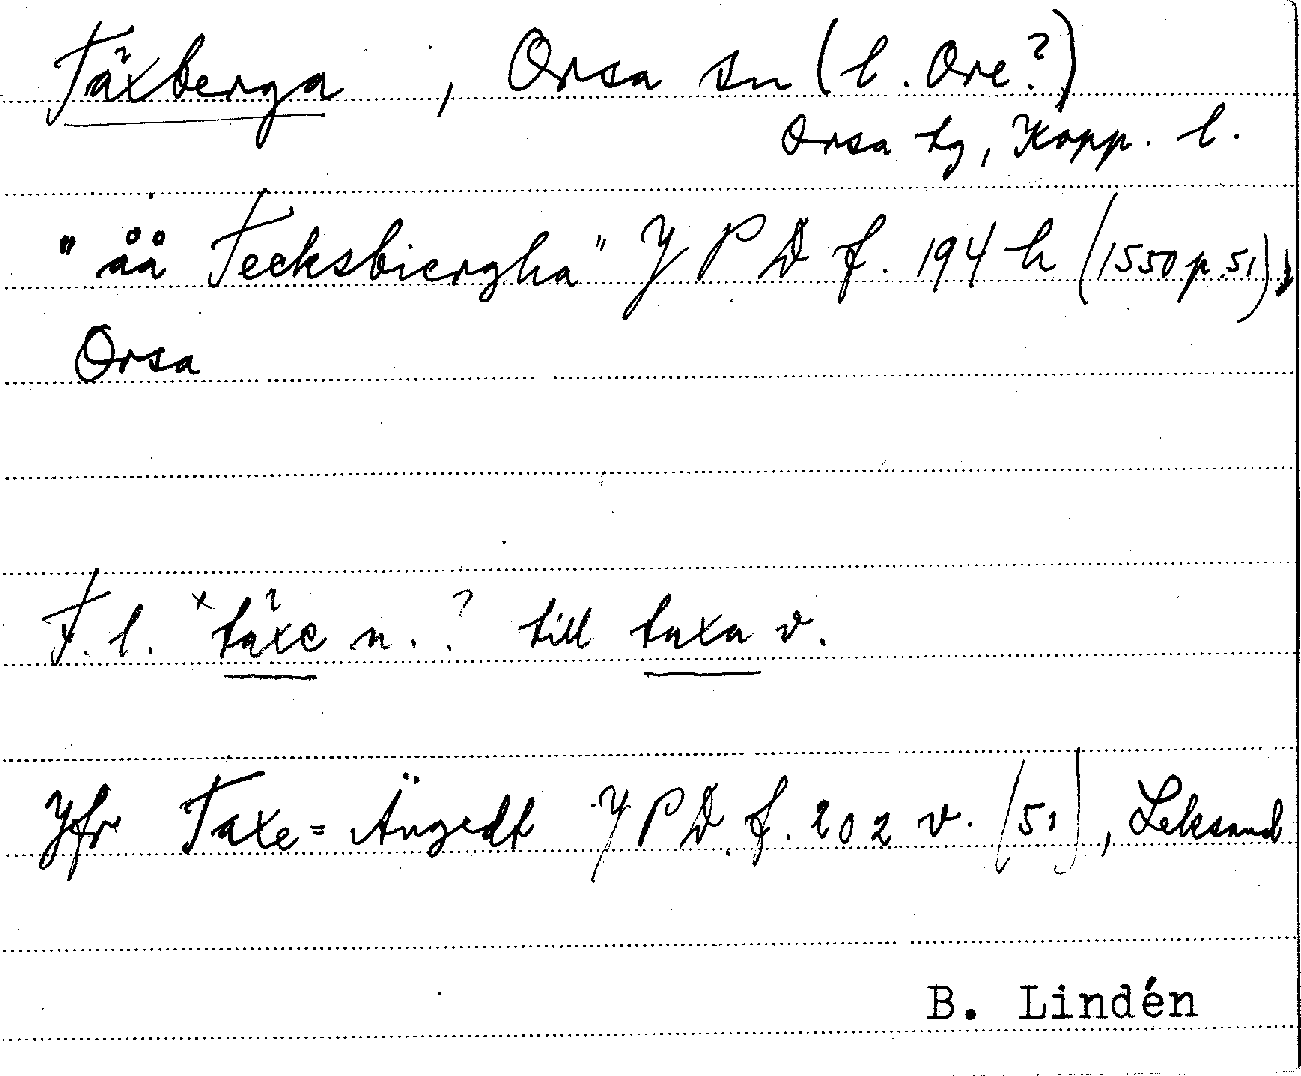 Täxberga , Orsa sn (l. Ore?)
Orsa tg, Kopp. l.
"åå Tecksbiergha" JPD f. 194 h (1550 p 51),
Orsa
F.l. ˣtäxe n. ? till taxa v.
Jfr Taxe=Ängedt JPD f. 202 v. (51), Leksand
B. Lindén